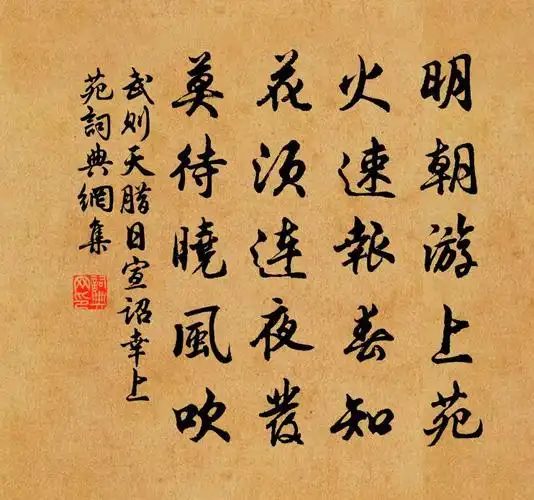 明朝游上苑
火速報春知
花須連夜發
莫待曉風吹
武則天臘日宣詔幸上
苑詞典網集